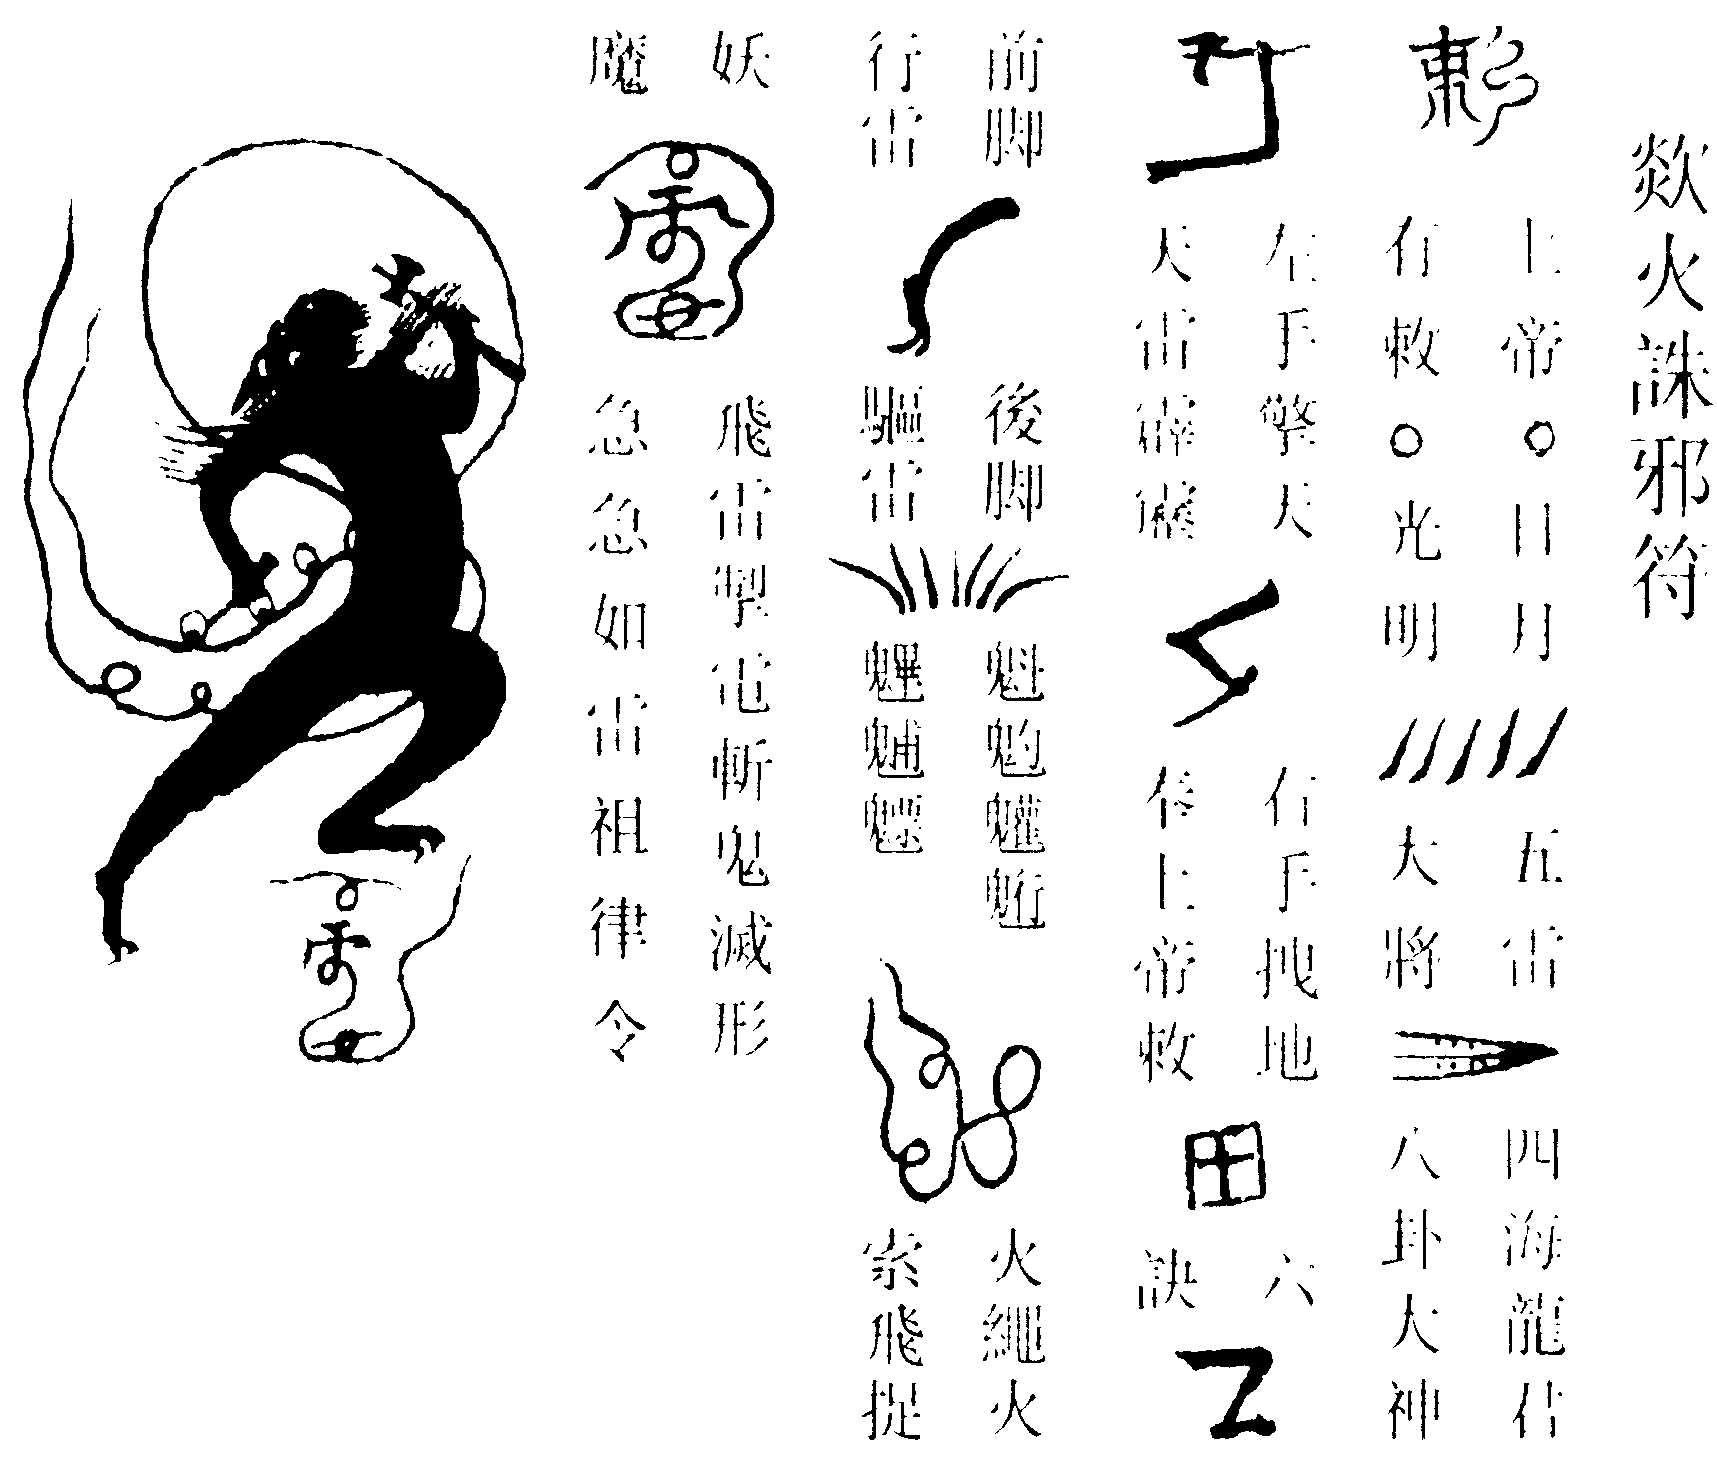 欻火誅邪符
敕
上帝
有敕
日月
光明
五雷
大將
四海龍君
八卦大神
左手擎天
天雷霹靂
右手拽地
奉上帝敕
六
訣
前脚
行雷
後脚
驅雷
魁魡䰱䰢
魓䰣魒
火繩火
索飛捉
妖
魔
飛雷掣電斬鬼滅形
急急如雷祖律令